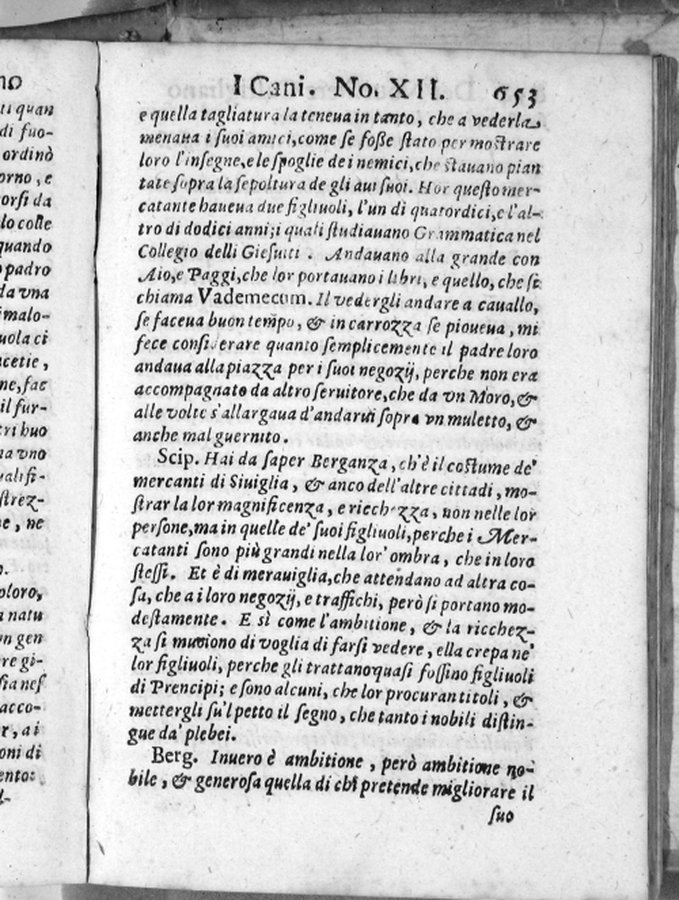 I Cani. No. XII. 653
e quella tagliatura la teneua in tanto, che a vederla
menaua i suoi amici, come se foße stato per mostrare
loro l'insegne, e le spoglie de i nemici, che stauano pian
tate sopra la sepoltura de gli aui suoi. Hor questo mer-
catante haueua due figliuoli, l'un di quatordici, e l'al-
tro di dodici anni; i quali studiauano Grammatica nel
Collegio delli Giesuiti. Andauano alla grande con
Aio, e Paggi, che lor portauano i libri, e quello, che si
chiama Vademecum. Il vedergli andare a cauallo,
se faceua buon tempo, & in carrozza se pioueua, mi
fece considerare quanto semplicemente il padre loro
andaua alla piazza per i suoi negozij, perche non era
accompagnato da altro seruitore, che da vn Moro, &
alle volte s'allargaua d'andarui sopra vn muletto, &
anche mal guernito.
Scip. Hai da saper Berganza, ch'è il costume de'
mercanti di Siuiglia, & anco dell'altre cittadi, mo-
strar la lor magnificenza, e riechezza, non nelle lor
persone, ma in quelle de' suoi figliuoli, perche i Mer-
catanti sono più grandi nella lor' ombra, che in loro
stessi. Et è di merauiglia, che attendano ad altra co-
sa, che a i loro negozij, e traffichi, però si portano mo-
destamente. E sì come l'ambitione, & la ricchez-
za si muoiono di voglia di farsi vedere, ella crepa ne'
lor figliuoli, perche gli trattano quasi fossino figliuoli
di Prencipi; e sono alcuni, che lor procuran titoli, &
mettergli su'l petto il segno, che tanto i nobili distin-
gue da' plebei.
Berg. Inuero è ambitione, però ambitione no-
bile, & generosa quella di chi pretende migliorare il
suo